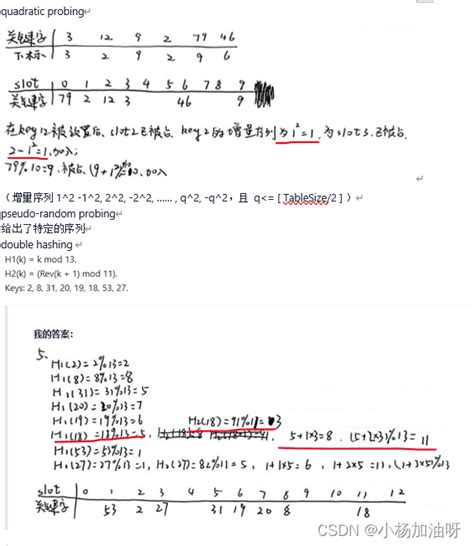 quadratic probing
关键字 3 12 9 2 79 46
下标 3 2 9 2 9 6
slot 0 1 2 3 4 5 6 7 8 9
关键字 79 2 12 3 46 9
在key12被放置后、slot2已被占、key2的增量序列为1²=1,为slot3,已被占,
2-1²=1,加入;
79%10=9,被占,(9+1²)%10=0,加入
(增量序列 1^2 -1^2, 2^2, -2^2, ...... , q^2, -q^2,且 q<= [ TableSize/2 ] )
pseudo-random probing
给出了特定的序列
double hashing
H1(k) = k mod 13.
H2(k) = (Rev(k + 1) mod 11).
Keys: 2, 8, 31, 20, 19, 18, 53, 27.
我的答案:
5.
H₁(2)=2%13=2
H₁(8)=8%13=8
H₁(31)=31%13=5
H₁(20)=20%13=7
H₁(19)=19%13=6 H₂(18)=91%11=3
H₁(18)=18%13=5, 5+1×3=8, (5+2×3)%13=11
H₁(53)=53%13=1
H₁(27)=27%13=1, H₂(27)=82%11=5, 1+1×5=6, 1+2×5=11, (1+3×5)%13
slot 0 1 2 3 4 5 6 7 8 9 10 11 12
关键字 53 2 27 31 19 20 8 18
CSDN @小杨加油呀